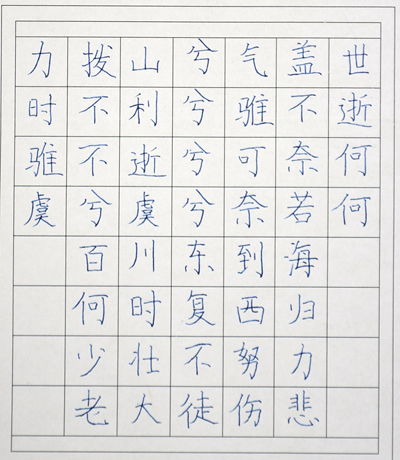 力拨山兮气盖世
时不利兮骓不逝
骓不逝兮可奈何
虞兮虞兮奈若何
百川东到海
何时复西归
少壮不努力
老大徒伤悲